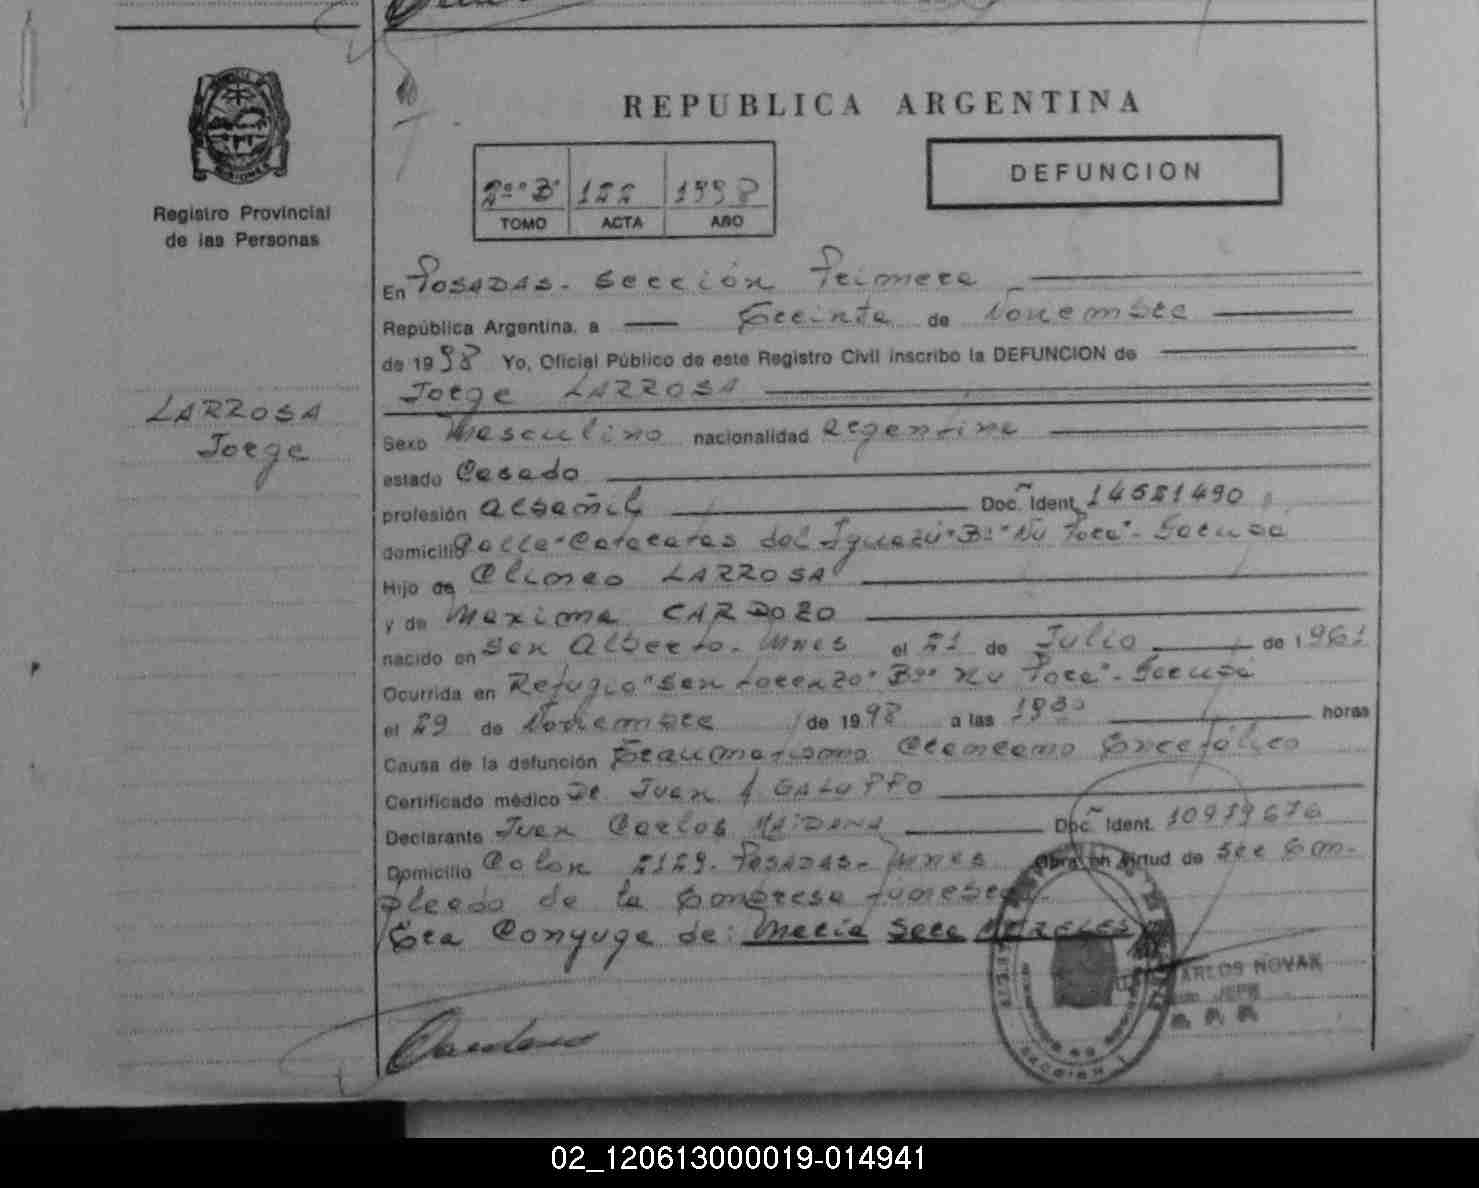 REPUBLICA ARGENTINA
DEFUNCION
2º "B" 122 1998
TOMO ACTA AÑO
Registro Provincial
de las Personas
En Posadas - Sección Primera
República Argentina, a Treinta de Noviembre
de 1998 Yo, Oficial Público de este Registro Civil inscribo la DEFUNCION de
Jorge LARROSA
LARROSA
Jorge
Sexo Masculino nacionalidad Argentina
estado Casado
profesión Albañil Doc. Ident. 14581490
domicilio Calle "Cataratas del Iguazú" Bº "Ñu Porá" - Garupá
Hijo de Olimpo LARROSA
y de Maxima CARDOZO
nacido en San Alberto - Mnes el 21 de Julio de 1961
Ocurrida en Refugio "San Lorenzo" Bº "Ñu Porá" - Garupá
el 29 de Noviembre de 1998 a las 1930 horas
Causa de la defunción Traumatismo Craneano Encefálico
Certificado médico Dr. Juan A GALUPPO
Declarante Juan Carlos MAIDANA Doc. Ident. 10979676
Domicilio Colon 2129 - Posadas - Mnes Obra en virtud de ser Em-
pleado de la Empresa funebre.
Era Conyuge de: Maria Sara
CARLOS NOVAK
JEFE
SECCION 1
02_120613000019-014941